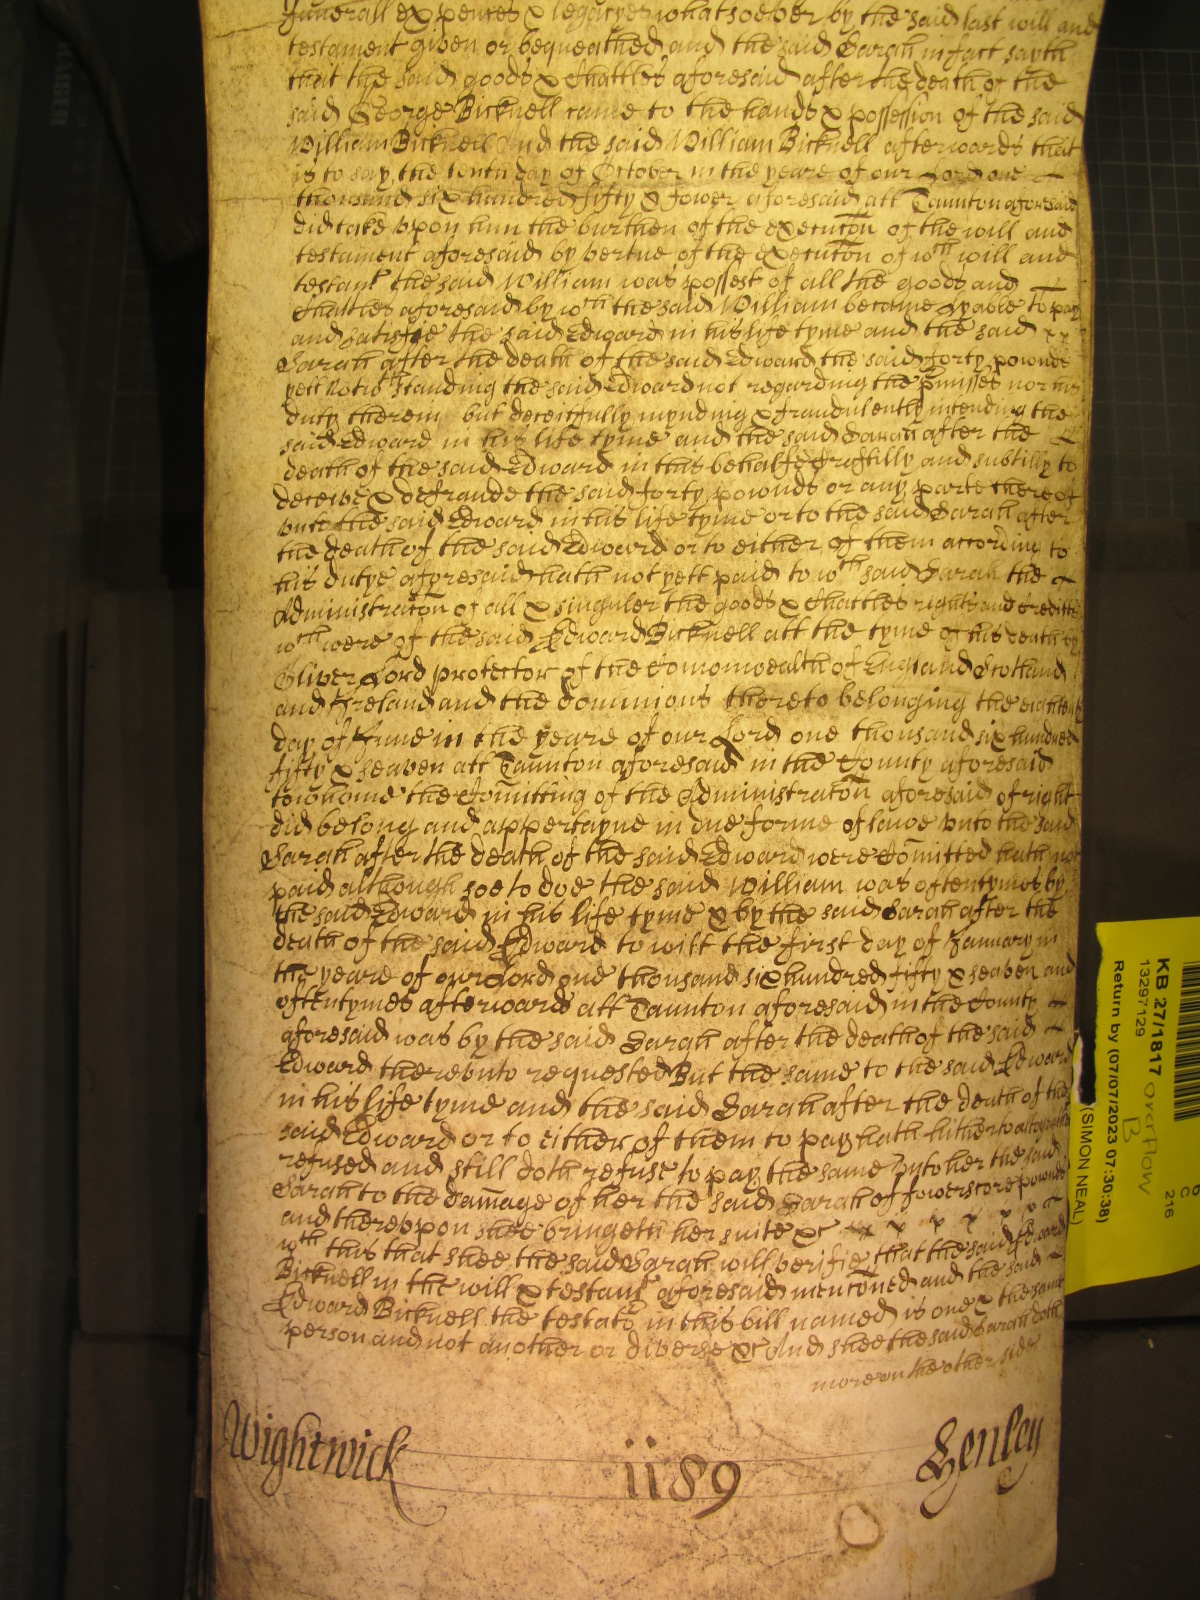 funerall expences & legacyes whatsoever by the said last will and
testament given or bequeathed and the said Sarah in fact sayth
that the said goods & Chattles aforesaid after the death of the
said George Bicknell came to the hands & possession of the said
William Bicknell And the said William Bicknell afterwards that
is to say the tenth day of October in the yeare of our Lord one
thousand six hundred fifty & fower aforesaid att Taunton aforesaid
did take upon him the burthen of the execution of the will and
testament aforesaid by vertue of the execution of wch will and
testamt the said William was possest of all the goods and
Chattles aforesaid by wch the said William became lyable to pay
and satisfie the said Edward in his life tyme and the said
Sarah after the death of the said Edward the said forty pownds
yett notwthstanding the said Edward not regarding the pmisses nor his
duty therein but deceitfully mynding & fraudulently intending the
said Edward in his life tyme and the said Sarah after the
death of the said Edward in this behalfe craftilly and subtilly to
deceive & defraude the said forty pownds or any parte thereof
unto the said Edward in his life tyme or to the said Sarah after
the death of the said Edward or to either of them according to
his dutye aforesaid hath not yett paid to wch said Sarah the
Administracon of all & singuler the goods & Chattles rights and creditts
wch were of the said Edward Bicknell att the tyme of his death by
Oliver Lord protector of the Comonwealth of England Scotland
and Ireland and the dominions thereto belonging the eighteenth
day of June in the yeare of our Lord one thousand six hundred
fifty & seaven att Taunton aforesaid in the County aforesaid
to whome the Comitting of the Administracon aforesaid of right
did belong and appertayne in due forme of lawe unto the said
Sarah after the death of the said Edward were Comitted hath not
paid although soe to doe the said William was oftentymes by
the said Edward in his life tyme & by the said Sarah after the
death of the said Edward to witt the first day of January in
the yeare of our Lord one thousand six hundred fifty & seaven and
oftentymes afterwards att Taunton aforesaid in the County
aforesaid was by the said Sarah after the death of the said
Edward thereunto requested But the same to the said Edward
in his life tyme and the said Sarah after the death of the
said Edward or to either of them to pay hath hitherto altogether
refused and still doth refuse to pay the same unto her the said
Sarah to the damage of her the said Sarah of fowerscore pownds
and thereupon shee bringeth her suite &c
wth this that shee the said Sarah will verifie that the said Edward
Bicknell in the will & testamt aforesaid mentioned and the said
Edward Bicknell the testator in this bill named is one & the same
person and not another or diverse &c And shee the said Sarah doth
more on the other side
Wightwick 1189 Henley
KB 27/1817 overflow B
13297129
Return by (07/07/2023 07:30:38)
(SIMON NEAL)
C
216